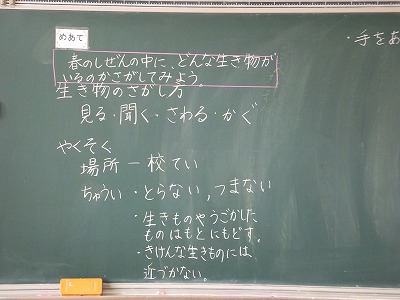 めあて
春のしぜんの中に、どんな生き物が
いるのかさがしてみよう。
生き物のさがし方
見る・聞く・さわる・かぐ
やくそく
場所－校てい
ちゅうい・とらない，つまない
・生きものやうごかした
ものはもとにもどす。
・きけんな生きものには
近づかない。
・手をあ